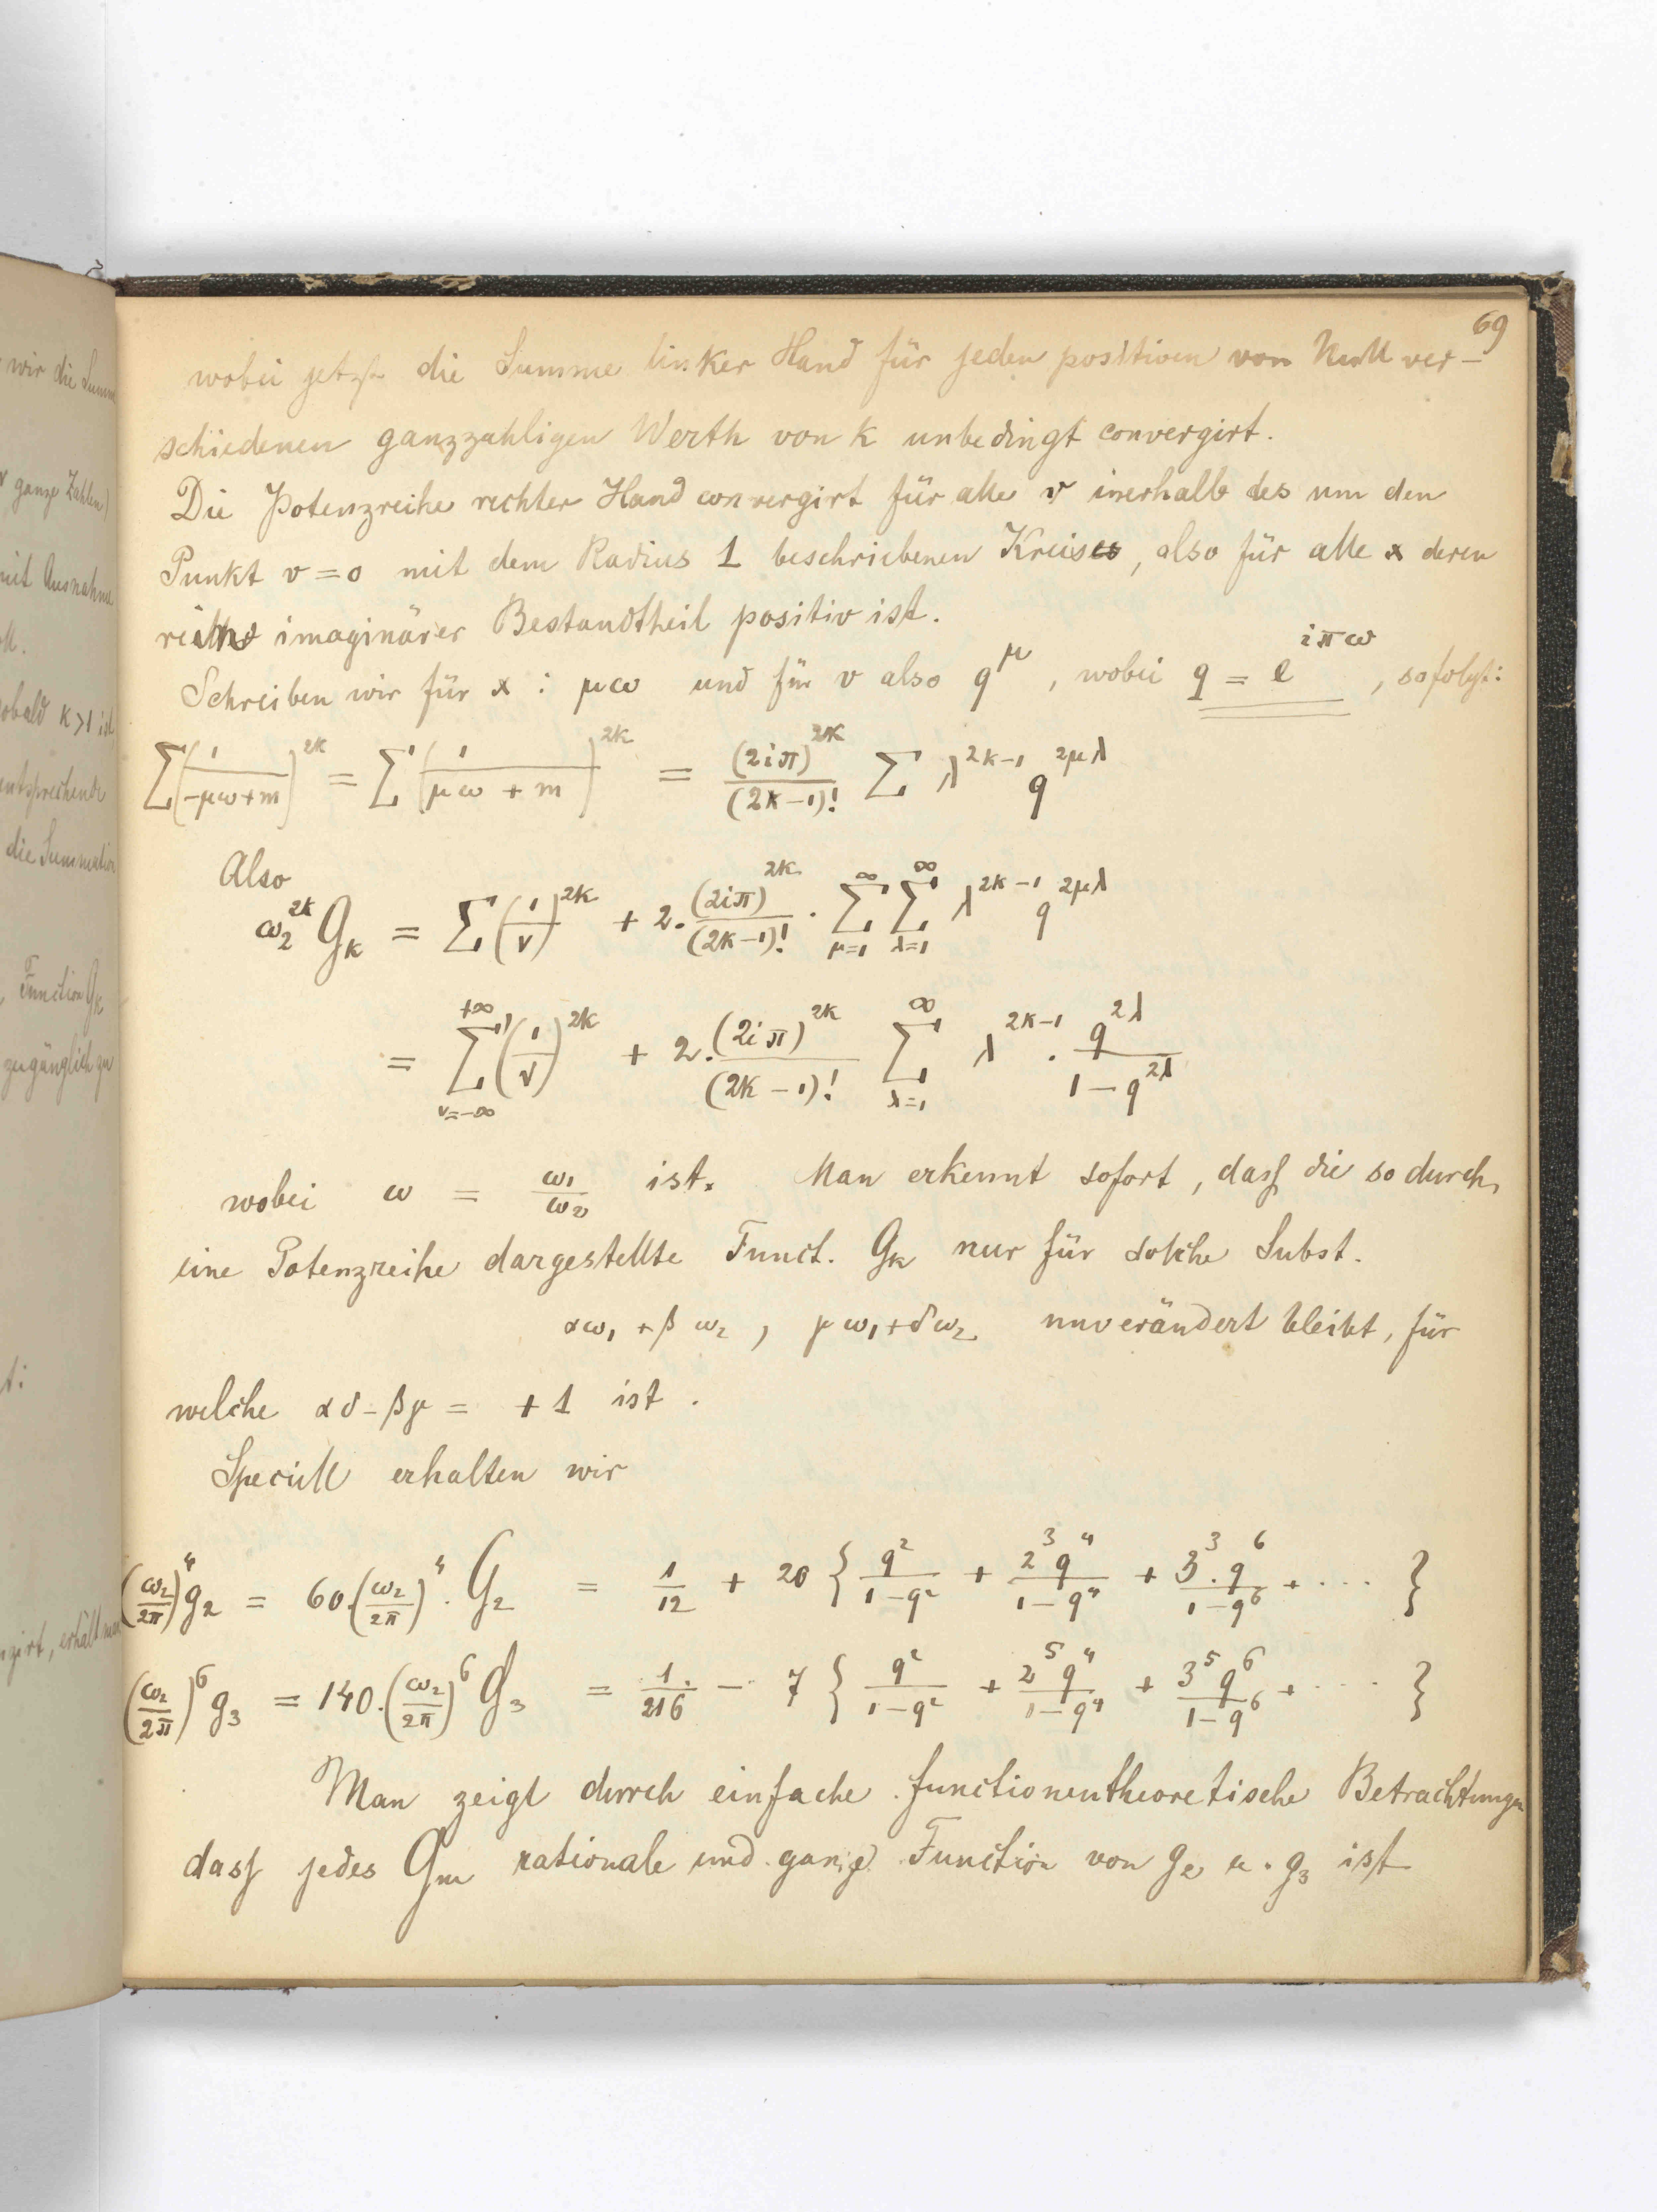 wir die Summe
ν ganze Zahlen)
mit Ausnahme
sobald k>1 ist
entsprechende
die Summation
, Function G_k
zugänglich zu
t:
girt, erhält man
69
wobei jetzt die Summe linker Hand für jeden positiven von Null ver-
schiedenen ganzzahligen Werth von k unbedingt convergirt.
Die Potenzreihe rechter Hand convergirt für alle v innerhalb des um den
Punkt v=0 mit dem Radius 1 beschriebenen Kreises, also für alle x deren
rein imaginärer Bestandtheil positiv ist.
Schreiben wir für x : μω und für v also q^μ , wobei q = e^{iπω} , so folgt:
∑(1/(-μω+m))^{2k} = ∑(1/(μω+m))^{2k} = (2iπ)^{2k}/(2k-1)! ∑ λ^{2k-1} q^{2μλ}
Also
ω_2^{2k} G_k = ∑(1/ν)^{2k} + 2·(2iπ)^{2k}/(2k-1)! · ∑_{μ=1}^{∞} ∑_{λ=1}^{∞} λ^{2k-1} q^{2μλ}
= ∑'_{ν=-∞}^{+∞} (1/ν)^{2k} + 2·(2iπ)^{2k}/(2k-1)! ∑_{λ=1}^{∞} λ^{2k-1} · q^{2λ}/(1-q^{2λ})
wobei ω = ω_1/ω_2 ist. Man erkennt sofort, dass die so durch
eine Potenzreihe dargestellte Funct. G_k nur für solche Subst.
αω_1 + βω_2 , γω_1 + δω_2 unverändert bleibt, für
welche αδ-βγ = +1 ist .
Speciell erhalten wir
(ω_2/2π)^4 g_2 = 60·(ω_2/2π)^4 · G_2 = 1/12 + 20 { q^2/(1-q^2) + 2^3 q^4/(1-q^4) + 3^3·q^6/(1-q^6) + ···· }
(ω_2/2π)^6 g_3 = 140·(ω_2/2π)^6 G_3 = 1/216 - 7 { q^2/(1-q^2) + 2^5 q^4/(1-q^4) + 3^5 q^6/(1-q^6) + ···· }
Man zeigt durch einfache functionentheoretische Betrachtungen
dass jedes G_m rationale und ganze Function von g_2 u. g_3 ist